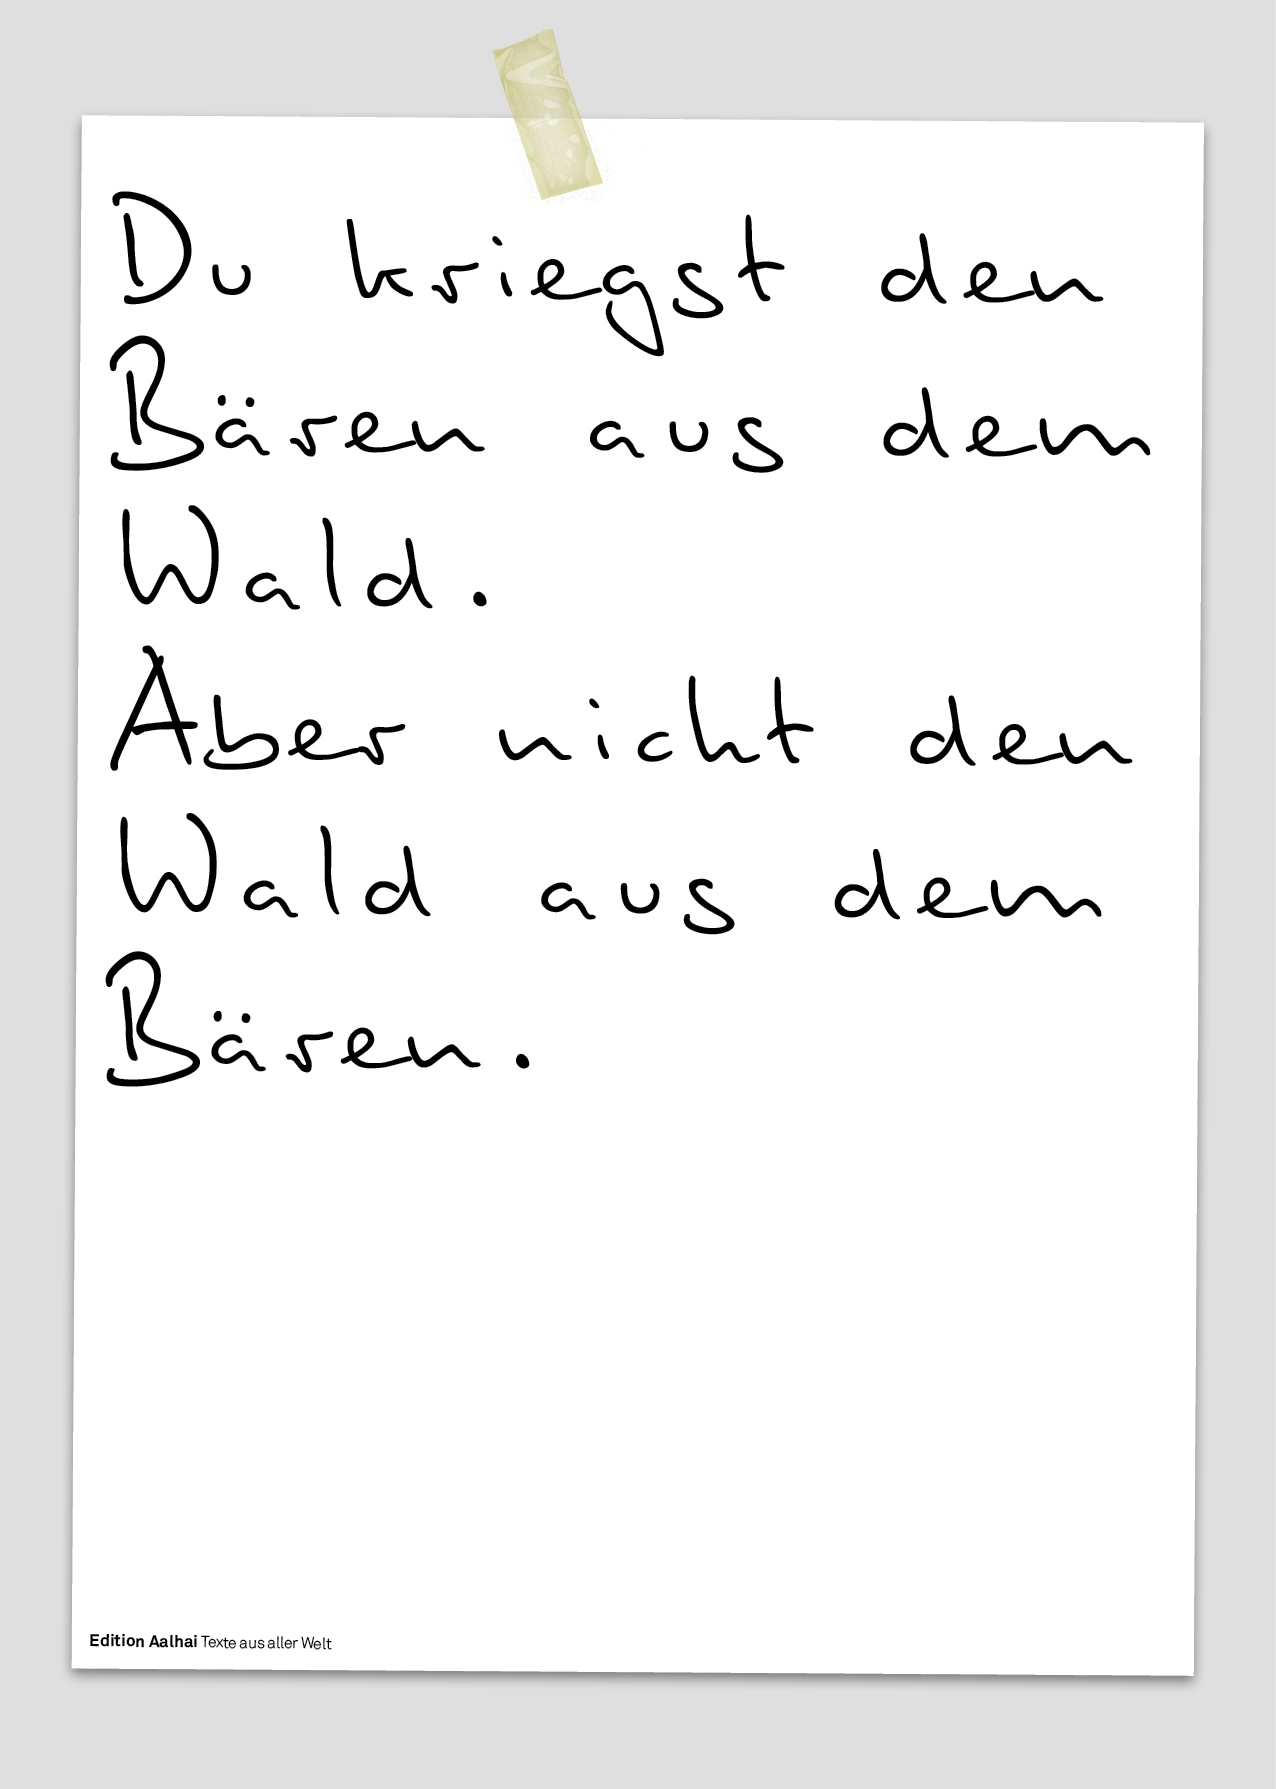 Du kriegst den
Bären aus dem
Wald.
Aber nicht den
Wald aus dem
Bären.
Edition Aalhai Texte aus aller Welt